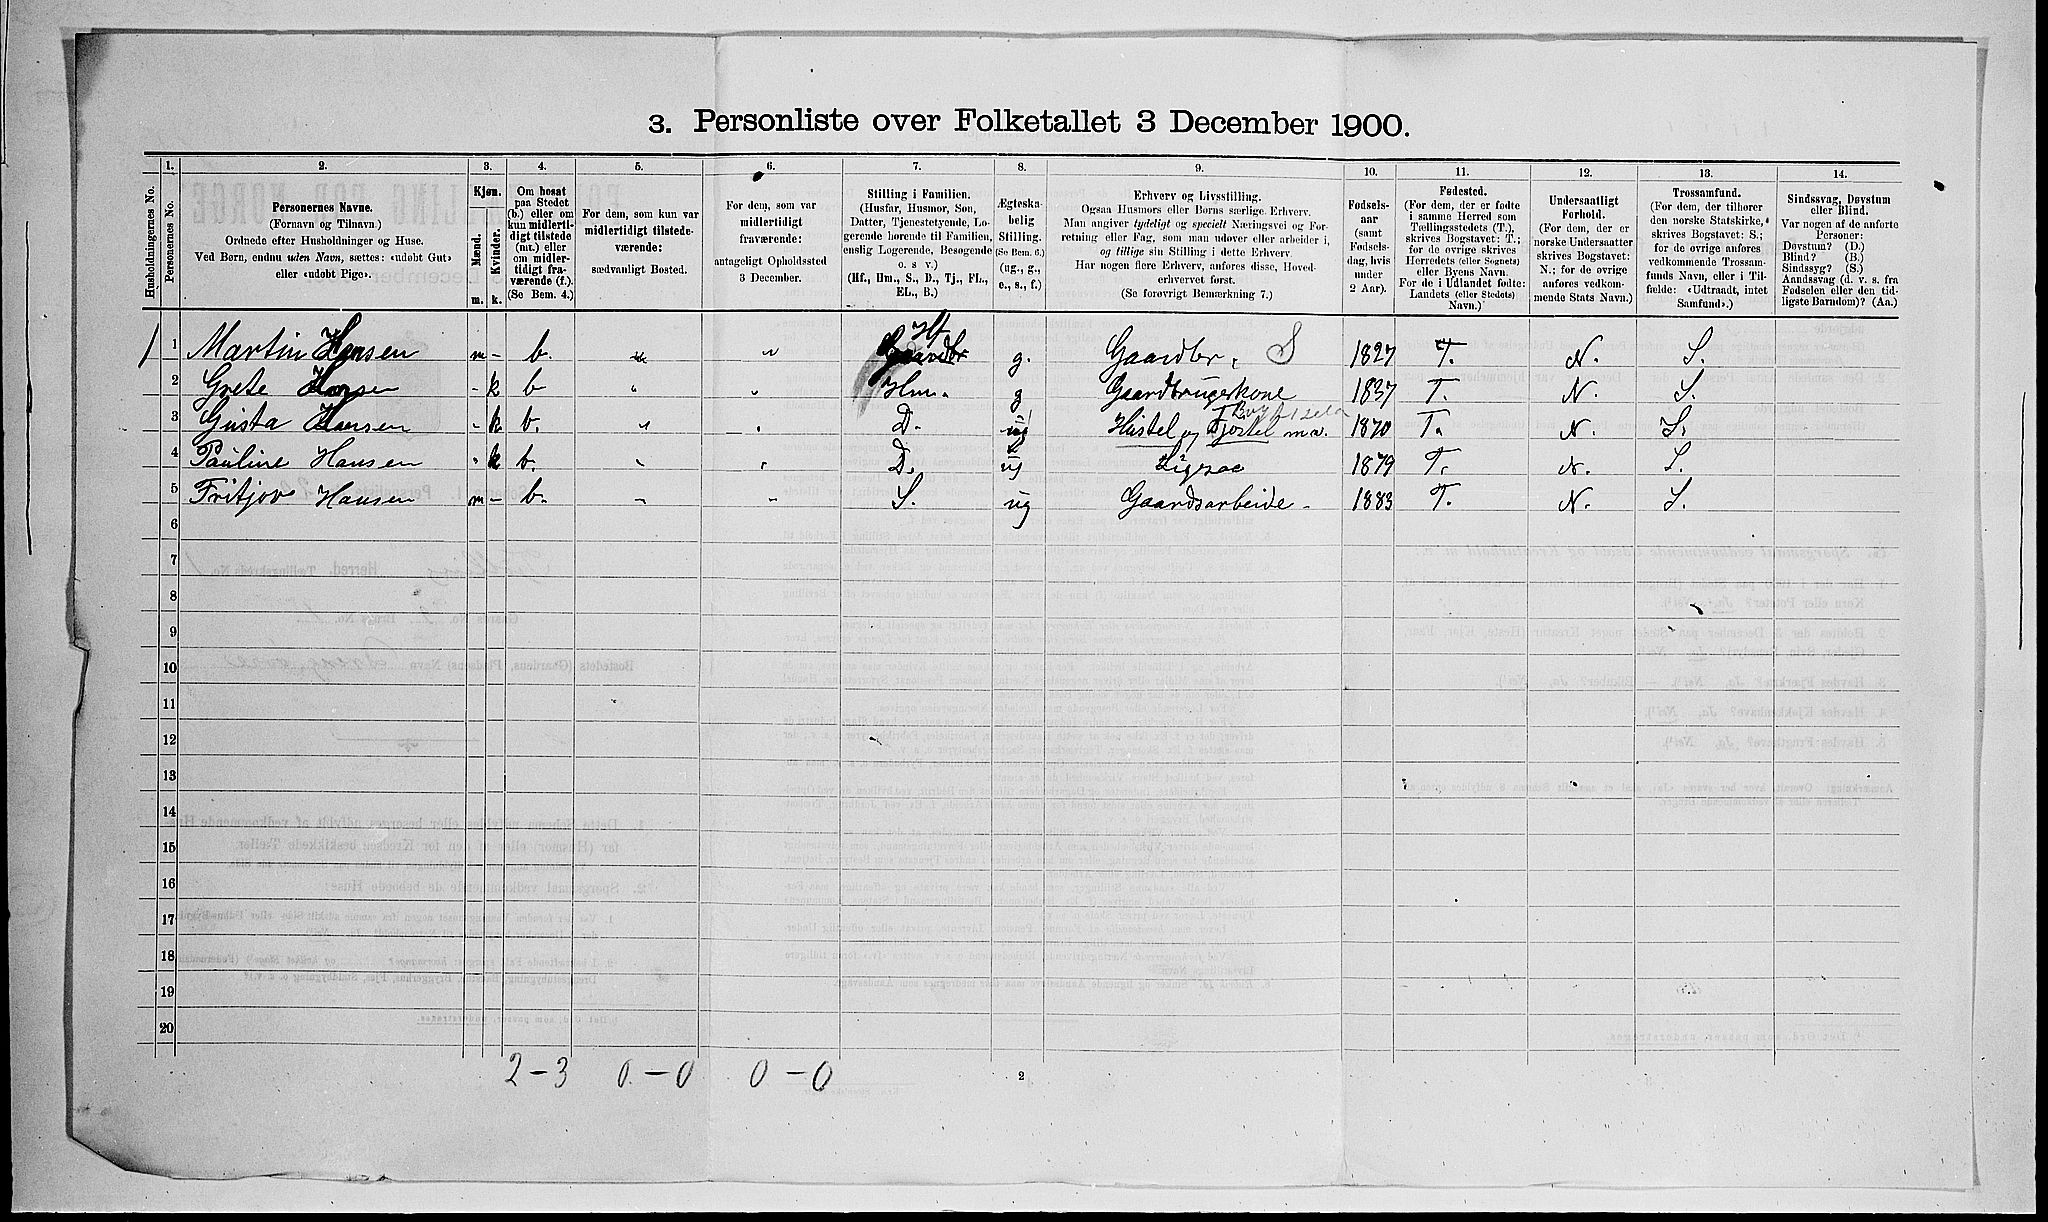 3. Personliste over Folketallet 3 December 1900.
Husholdningernes No.
1.
Personernes No.
2.
Personernes Navne.
(Fornavn og Tilnavn.)
Ordnede efter Husholdninger og Huse.
Ved Børn, endnu uden Navn, sættes: «udøbt Gut»
eller «udøbt Pige».
3.
Kjøn.
Mænd.
Kvinder.
m.
k.
4.
Om bosat
paa Stedet
(b.) eller om
kun midlerti-
digt tilstede
(mt.) eller
om midler-
tidigt fra-
værende (f.).
(Se Bem. 4.)
5.
For dem, som kun var
midlertidigt tilstede-
værende:
sædvanligt Bosted.
6.
For dem, som var
midlertidigt
fraværende:
antageligt Opholdssted
3 December.
7.
Stilling i Familien.
(Husfar, Husmor, Søn,
Datter, Tjenestetyende, Lo-
gerende hørende til Familien,
enslig Logerende, Besøgende
o. s v.)
(Hf., Hm., S., D., Tj., FL.,
EL., B.)
8.
Ægteska-
belig
Stilling.
(Se Bem. 6.)
(ug., g.,
e., s., f.)
9.
Erhverv og Livsstilling.
Ogsaa Husmors eller Børns særlige Erhverv.
Man angiver tydeligt og specielt Næringsvei og For-
retning eller Fag, som man udøver eller arbeider i,
og tillige sin Stilling i dette Erhverv.
Har nogen flere Erhverv, anføres disse, Hoved-
erhvervet først.
(Se forøvrigt Bemærkning 7.)
10.
Fødsels-
aar
(samt
Fødsels-
dag, hvis
under
2 Aar).
11.
Fødested.
(For dem, der er fødte
i samme Herred som
Tællingsstedets (T.),
skrives Bogstavet: T.;
for de øvrige skrives
Herredets (eller Sognets)
eller Byens Navn.
For de i Udlandet fødte:
Landets (eller Stedets)
Navn.)
12.
Undersaatligt
Forhold.
(For dem, der er
norske Undersaatter
skrives Bogstavet:
N.; for de øvrige
anføres vedkom-
mende Stats Navn.)
13.
Trossamfund.
(For dem, der tilhører
den norske Statskirke,
skrives Bogstavet: S.;
for de øvrige anføres
vedkommende Trossam-
funds Navn, eller i Til-
fælde: «Udtraadt, intet
Samfund».)
14.
Sindssvag, Døvstum
eller Blind.
Var nogen af de anførte
Personer:
Døvstum? (D.)
Blind? (B.)
Sindssyg? (S.)
Aandssvag (d. v. s. fra
Fødselen eller den tid-
ligste Barndom)? (Aa.)
1 1 Martin Hansen m - b. " " Gaardbr Hf g. Gaardbr. S 1827 T. N. S.
2 Grete Hansen - k b " " Hm. g Gaardbrugerkone 1837 T. N. S.
3 Gusta Hansen - k b. " " D. ug Hustel og Fjøstel m.v. 1870 T. N. S.
4 Pauline Hansen " k b. " " D. ug Ligesaa 1879 T. N. S.
5 Fritjov Hansen m - b. " " S. ug Gaardsarbeide - 1883 T. N. S.
6
7
8
9
10
11
12
13
14
15
16
17
18
19
20
2 - 3 0 - 0 0 - 0
2